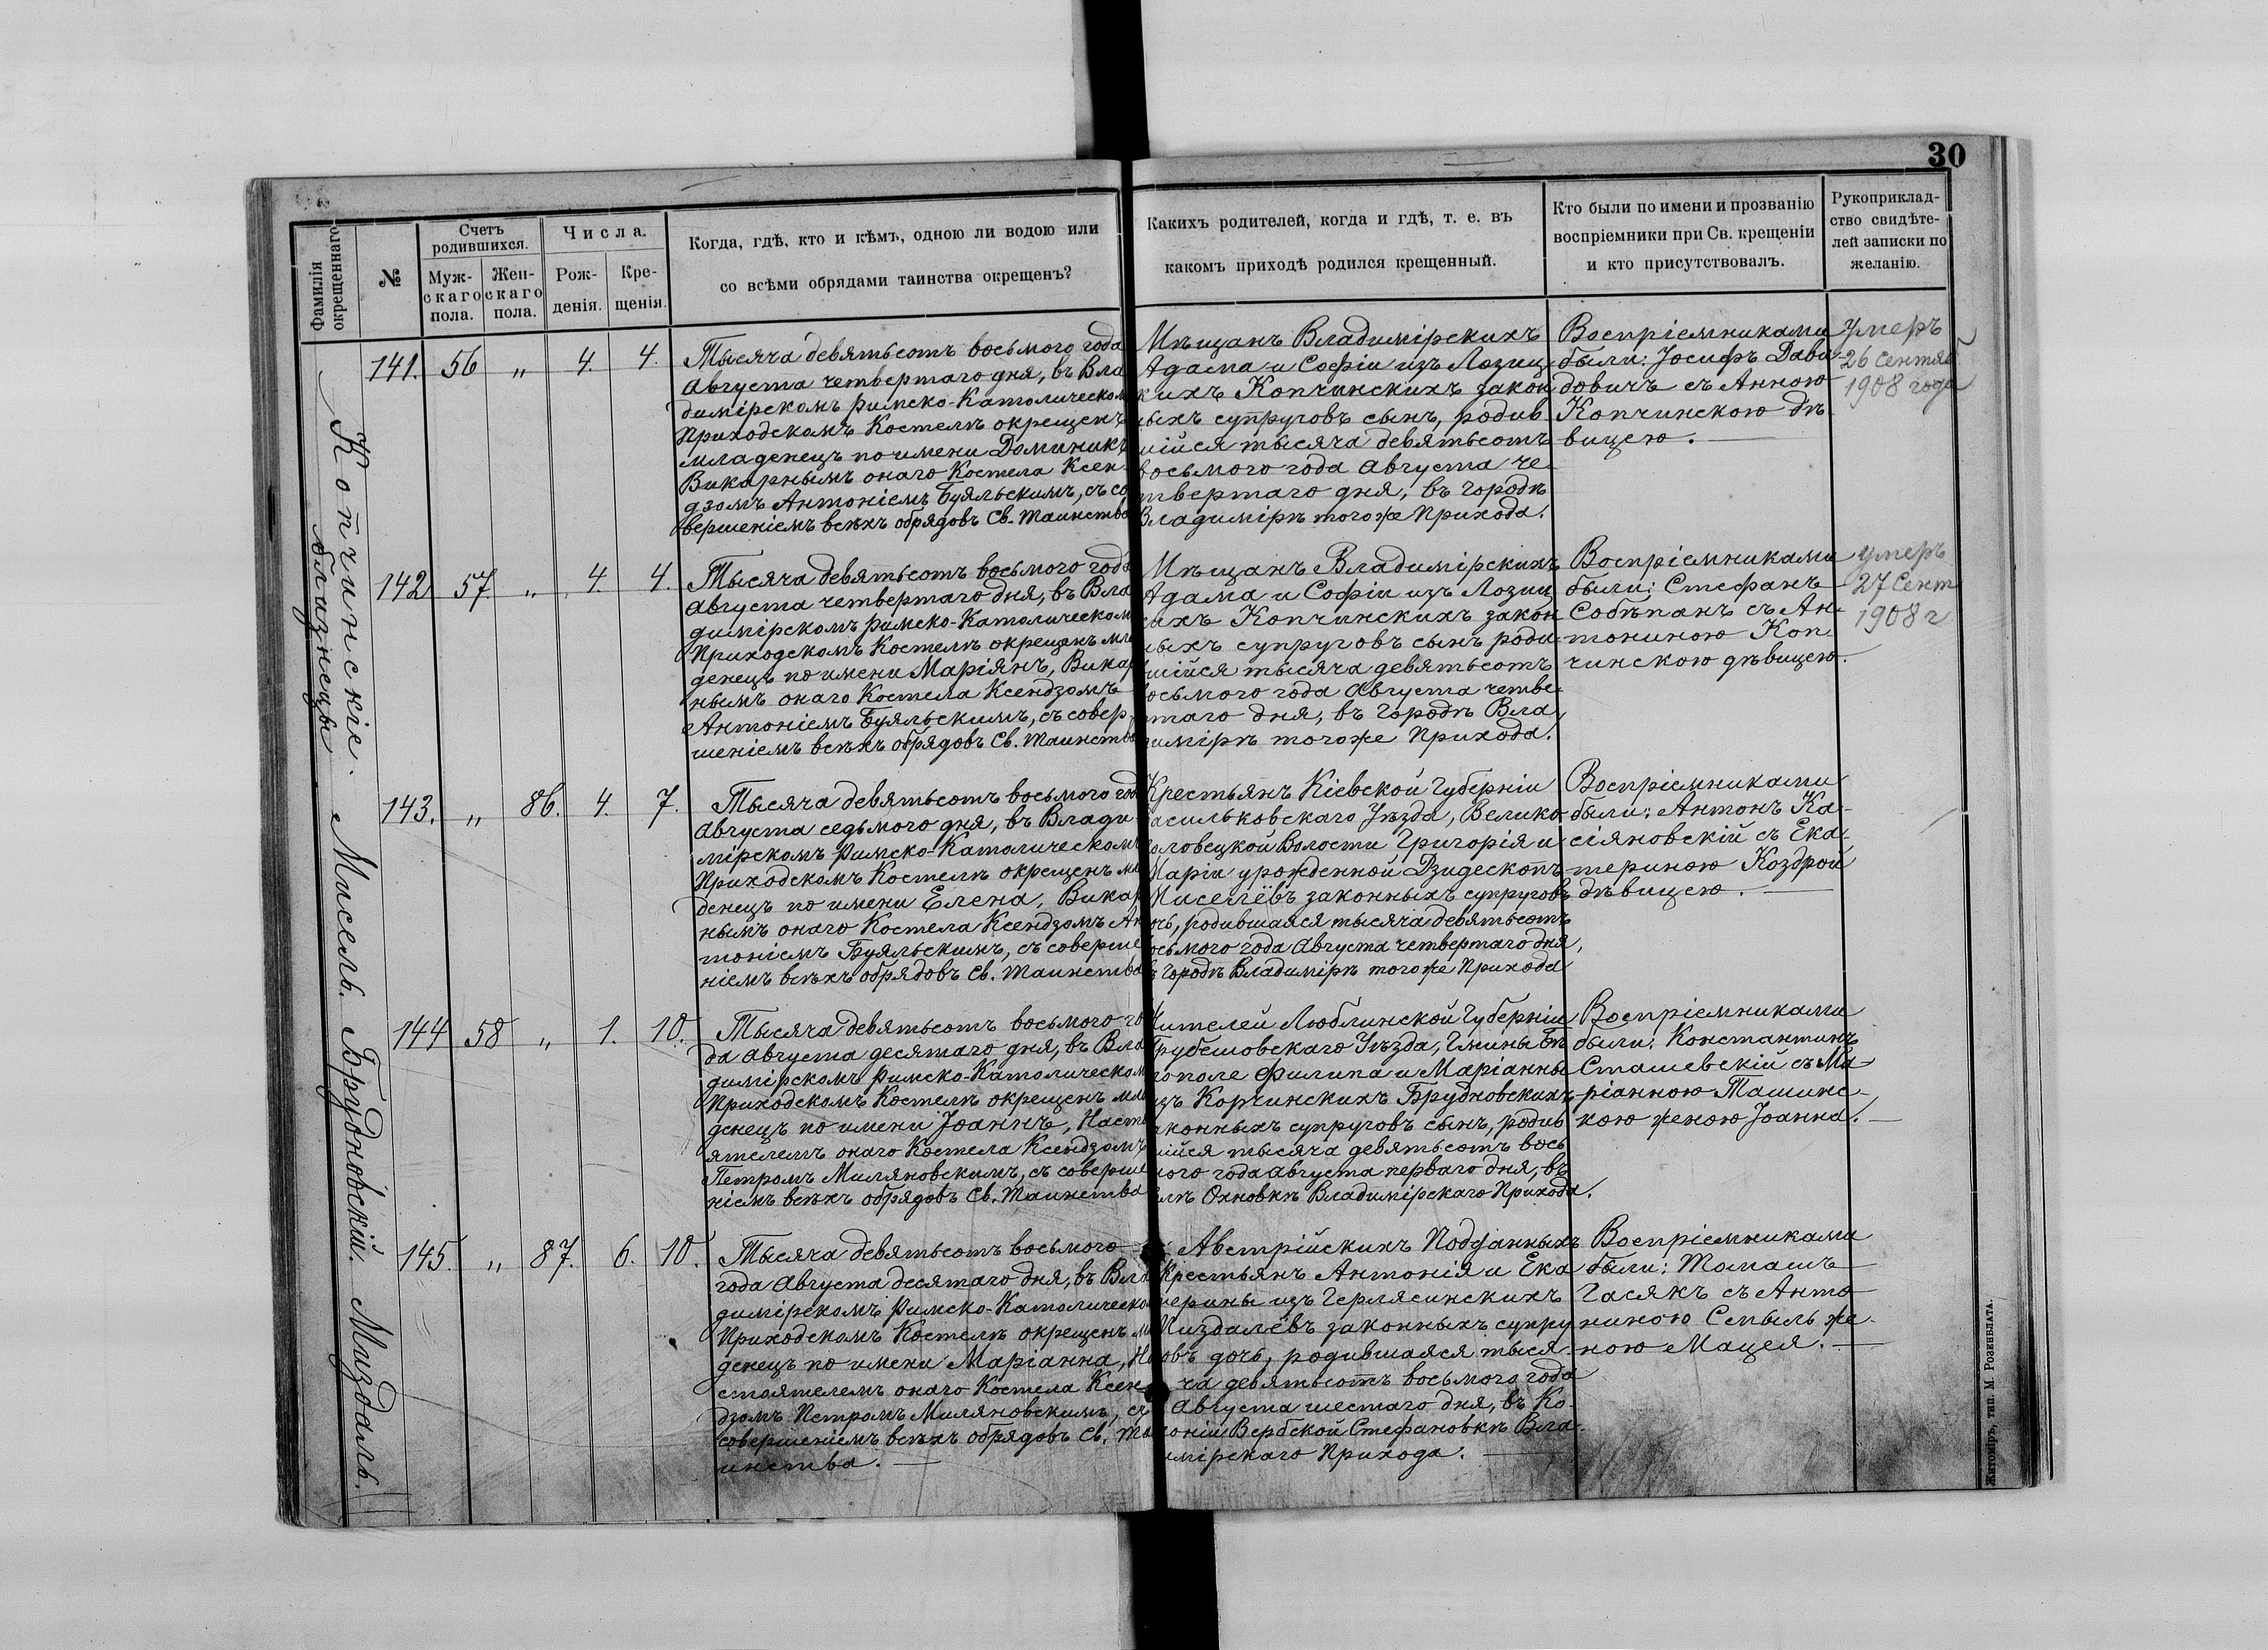 30
Фамилія окрещеннаго.
№
Счетъ родившихся.
Муж-скаго пола.
Жен-скаго пола.
Числа.
Рож-денія.
Кре-щенія.
Когда, гдѣ, кто и кѣмъ, одною ли водою или
со всѣми обрядами таинства окрещенъ?
Какихъ родителей, когда и гдѣ, т. е. въ
какомъ приходѣ родился крещенный.
Кто были по имени и прозванію
воспріемники при Св. крещеніи
и кто присутствовалъ.
Рукоприклад-
ство свидѣте-
лей записки по
желанію.
Копчинскіе.
близнецы
141. 56 „ 4. 4.
Тысяча девятьсотъ восьмого года
Августа четвертаго дня, въ Вла
димірскомъ Римско-Католическом
Приходскомъ Костелѣ окрещенъ
младенецъ по имени Доминикъ
Викарнымъ онаго Костела Ксен-
дзомъ Антоніемъ Буяльскимъ, съ со
вершеніемъ всѣхъ обрядовъ Св. Таинства
Мѣщанъ Владимірскихъ
Адама и Софіи изъ Лозиц
кихъ Копчинскихъ закон
ныхъ супруговъ сынъ, родив-
шійся тысяча девятьсотъ
восьмого года Августа че-
твертаго дня, въ Городѣ
Владимірѣ того же Прихода.
Воспріемниками
были: Іосифъ Дави-
довичъ съ Анною
Копчинскою дѣ-
вицею.
Умеръ
26 Сентяб
1908 года
142 57. „ 4. 4.
Тысяча девятьсотъ восьмого года
Августа четвертаго дня, въ Вла
димірскомъ Римско-Католическом
Приходскомъ Костелѣ окрещенъ мла
денецъ по имени Маріянъ, Викар
нымъ онаго Костела Ксендзомъ
Антоніемъ Буяльскимъ, съ совер-
шеніемъ всѣхъ обрядовъ Св. Таинства
Мѣщанъ Владимірскихъ
Адама и Софіи изъ Лозиц
кихъ Копчинскихъ закон
ныхъ супруговъ сынъ роди-
вшійся тысяча девятьсотъ
восьмого года Августа четве-
ртаго дня, въ Городѣ Вла
димірѣ того же Прихода.
Воспріемниками
были: Стефанъ
Собѣпанъ съ Ан-
тониною Коп-
чинскою дѣвицею.
умеръ
27 Сент
1908 г
Мисель.
143. „ 86. 4. 7.
Тысяча девятьсотъ восьмого год
Августа седьмого дня, въ Влади
мірскомъ Римско-Католическомъ
Приходскомъ Костелѣ окрещенъ мл
денецъ по имени Елена, Викар
нымъ онаго Костела Ксендзомъ Ан
тоніемъ Буяльскимъ, съ соверше
ніемъ всѣхъ обрядовъ Св. Таинства
Крестьянъ Кіевской Губерніи
Васильковскаго Уѣзда, Велико-
половецкой Волости Григорія и
Маріи урожденной Дзидескотъ
Миселёвъ законныхъ супруговъ
дочь, родившаяся тысяча девятьсотъ
восьмого года Августа четвертаго дня,
въ Городѣ Владимірѣ того же Прихода
Воспріемниками
были: Антонъ Ка-
сіяновскій съ Ека-
териною Коздрой
дѣвицею.
Брудновскій.
144 58 „ 1. 10.
Тысяча девятьсотъ восьмого го
да Августа десятаго дня, въ Вла
димірскомъ Римско-Католическом
Приходскомъ Костелѣ окрещенъ мла
денецъ по имени Іоаннъ, Насто
ятелемъ онаго Костела Ксендзомъ
Петромъ Миляновскимъ, съ соверше
ніемъ всѣхъ обрядовъ Св. Таинства
Жителей Люблинской Губерніи
Грубешовскаго Уѣзда, Гмины Бѣ
лополе Филипа и Маріанны
изъ Корчинскихъ Брудновскихъ
законныхъ супруговъ сынъ, родив
шійся тысяча девятьсотъ вось
мого года Августа перваго дня, въ
селѣ Охновкѣ Владимірскаго Прихода.
Воспріемниками
были: Константинъ
Сташевскій съ Ма-
ріанною Ташинс-
кою женою Іоанна.
Миздаль.
145. „ 87. 6. 10.
Тысяча девятьсотъ восьмого
года Августа десятаго дня, въ Вла
димірскомъ Римско-Католическо
Приходскомъ Костелѣ окрещенъ мл
денецъ по имени Маріанна, На
стоятелемъ онаго Костела Ксен-
дзомъ Петромъ Миляновскимъ, съ
совершеніемъ всѣхъ обрядовъ Св. Та
инства.
Австрійскихъ Подданныхъ
Крестьянъ Антонія и Ека
терины изъ Герлясинскихъ
Миздалёвъ законныхъ супру
говъ дочь, родившаяся тыся-
ча девятьсотъ восьмого года
Августа шестаго дня, въ Ко-
лоніи Вербской Стефановкѣ Вла-
димірскаго Прихода.
Воспріемниками
были: Томашъ
Гасякъ съ Анто
ниною Семыль же-
ною Мацея.
Житоміръ, тип. М. Розенблата.